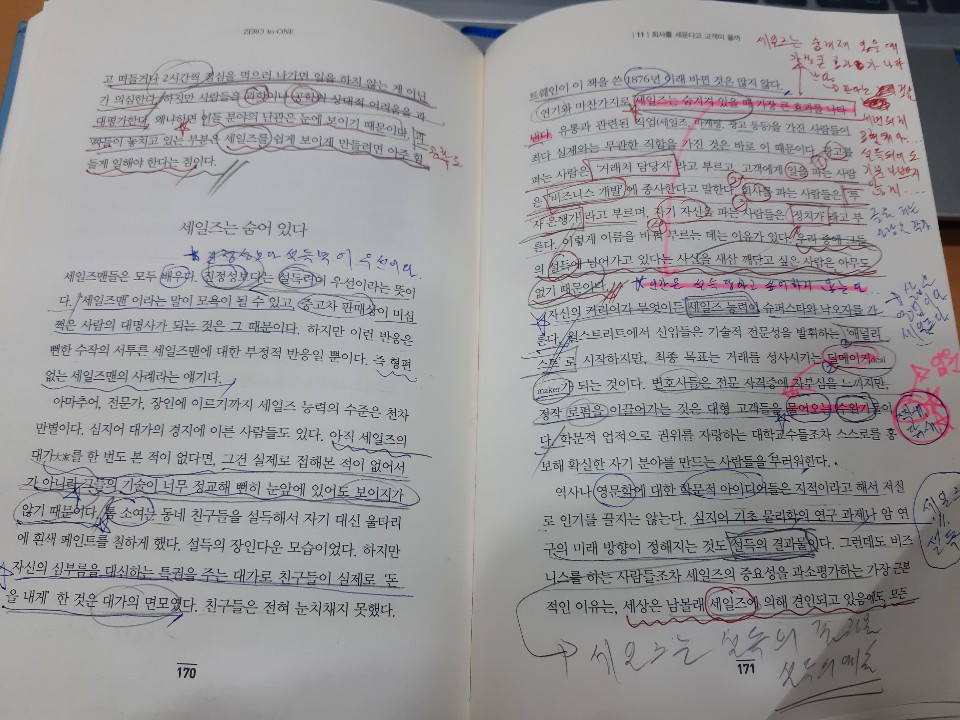 ZERO to ONE
고 떠들거나 2시간씩 점심을 먹으러 나가면 일을 하지 않는 게 아닌
가 의심한다. 하지만 사람들은 과학이나 공학의 상대적 어려움을 과
대평가한다. 왜냐하면 이들 분야의 난관은 눈에 보이기 때문이다. 과
학자들이 놓치고 있는 부분은 세일즈를 쉽게 보이게 만들려면 아주 힘
들게 일해야 한다는 점이다.
세일즈는 숨어 있다
진정성보다 설득력이 우선이다.
세일즈맨들은 모두 배우다. 진정성보다는 설득력이 우선이라는 뜻이
다. '세일즈맨'이라는 말이 모욕이 될 수 있고, 중고차 판매상이 미심
쩍은 사람의 대명사가 되는 것은 그 때문이다. 하지만 이런 반응은
뻔한 수작의 서투른 세일즈맨에 대한 부정적 반응일 뿐이다. 즉 형편
없는 세일즈맨의 사례라는 얘기다.
아마추어, 전문가, 장인에 이르기까지 세일즈 능력의 수준은 천차
만별이다. 심지어 대가의 경지에 이른 사람들도 있다. 아직 세일즈의
대가大家를 한 번도 본 적이 없다면, 그건 실제로 접해본 적이 없어서
가 아니라 그들의 기술이 너무 정교해 뻔히 눈앞에 있어도 보이지가
않기 때문이다. 톰 소여는 동네 친구들을 설득해서 자기 대신 울타리
에 흰색 페인트를 칠하게 했다. 설득의 장인다운 모습이었다. 하지만
자신의 심부름을 대신하는 특권을 주는 대가로 친구들이 실제로 '돈
을 내게' 한 것은 대가의 면모였다. 친구들은 전혀 눈치채지 못했다.
170
| 11 | 회사를 세운다고 고객이 올까
세일즈는 숨겨져 있을 때
트웨인이 이 책을 쓴 1876년 이래 바뀐 것은 많지 않다.
연기와 마찬가지로 세일즈는 숨겨져 있을 때 가장 큰 효과를 나타
낸다. 유통과 관련된 직업(세일즈, 마케팅, 광고 등등)을 가진 사람들이
죄다 실제와는 무관한 직함을 가진 것은 바로 이 때문이다. 광고를
파는 사람은 '거래처 담당자'라고 부르고, 고객에게 일을 파는 사람
은 '비즈니스 개발'에 종사한다고 말한다. 회사를 파는 사람들은 '투
자 은행가'라고 부르며, 자기 자신을 파는 사람들은 '정치가'라고 부
른다. 이렇게 이름을 바꿔 부르는 데는 이유가 있다. 우리 중에 그들
의 설득에 넘어가고 있다는 사실을 새삼 깨닫고 싶은 사람은 아무도
없기 때문이다.
자신의 커리어가 무엇이든 세일즈 능력이 슈퍼스타와 낙오자를 가
른다. 월스트리트에서 신입들은 기술적 전문성을 발휘하는 '애널리
스트'로 시작하지만, 최종 목표는 거래를 성사시키는 딜메이커deal
maker가 되는 것이다. 변호사들은 전문 사직증에 자부심을 느끼지만,
정작 로펌을 이끌어가는 것은 대형 고객들을 물어오는 수완가들이
다. 학문적 업적으로 권위를 자랑하는 대학교수들조차 스스로를 홍
보해 확실한 자기 분야를 만드는 사람들을 부러워한다.
역사나 영문학에 대한 학문적 아이디어들은 지적이라고 해서 저절
로 인기를 끌지는 않는다. 심지어 기초 물리학의 연구 과제나 암 연
구의 미래 방향이 정해지는 것도 설득의 결과물이다. 그런데도 비즈
니스를 하는 사람들조차 세일즈의 중요성을 과소평가하는 가장 근본
적인 이유는, 세상은 남몰래 세일즈에 의해 견인되고 있음에도, 모든
세일즈는 설득의
설득의 예술
171